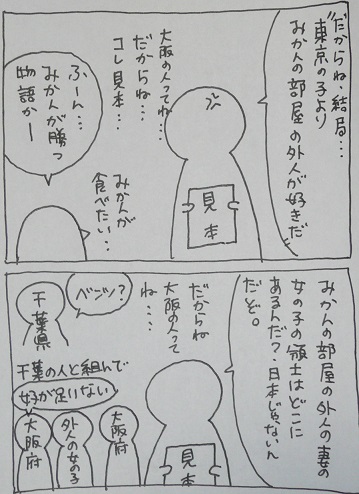 "だからね、結局…
東京の子より
みかんの部屋の外人が好きだ
大阪の人ってね…
だからね…
コレ見本…
見本
ふーん…
みかんが勝つ
物語かー
みかんが
食べたい…
みかんの部屋の外人の妻の
女の子の領土はどこに
あるんだ?日本じゃないん
だぞ。
だからね
大阪の人って
ね…
見本
ベンツ?
千葉県
千葉の人と組んで
好が足りない
大阪府
外人の女の子
大阪府